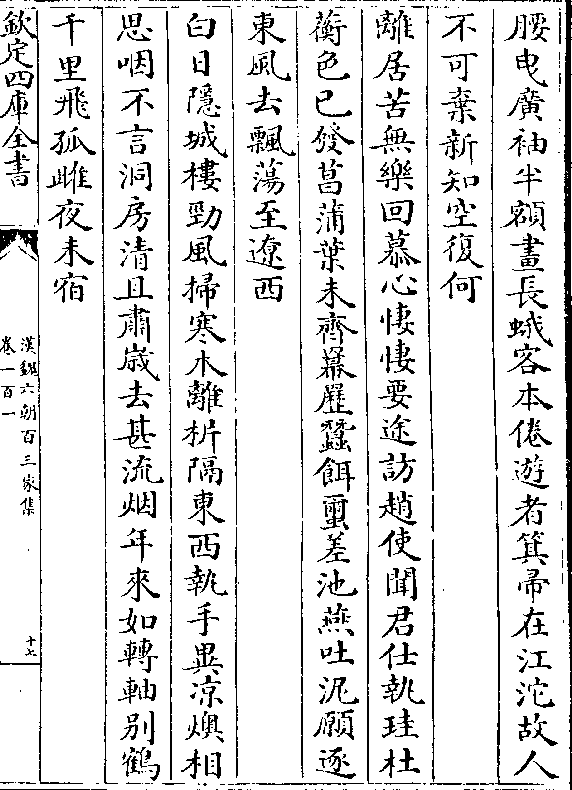 腰曳廣袖半額畫長蛾客本倦遊者箕帚在江沱故人
不可棄新知空復何
離居苦無樂回慕心悽悽要途訪趙使聞君仕執珪杜
蘅色已發菖蒲葉未齊羃歷蠶餌䖝差池燕吐泥願逐
東風去飄蕩至遼西
白日隱城樓勁風掃寒木離析隔東西執手異凉燠相
思咽不言洞房清且肅歲去甚流烟年來如轉軸别鶴
千里飛孤雌夜未宿
欽定四庫全書
漢魏六朝百三家集
卷一百一
十七